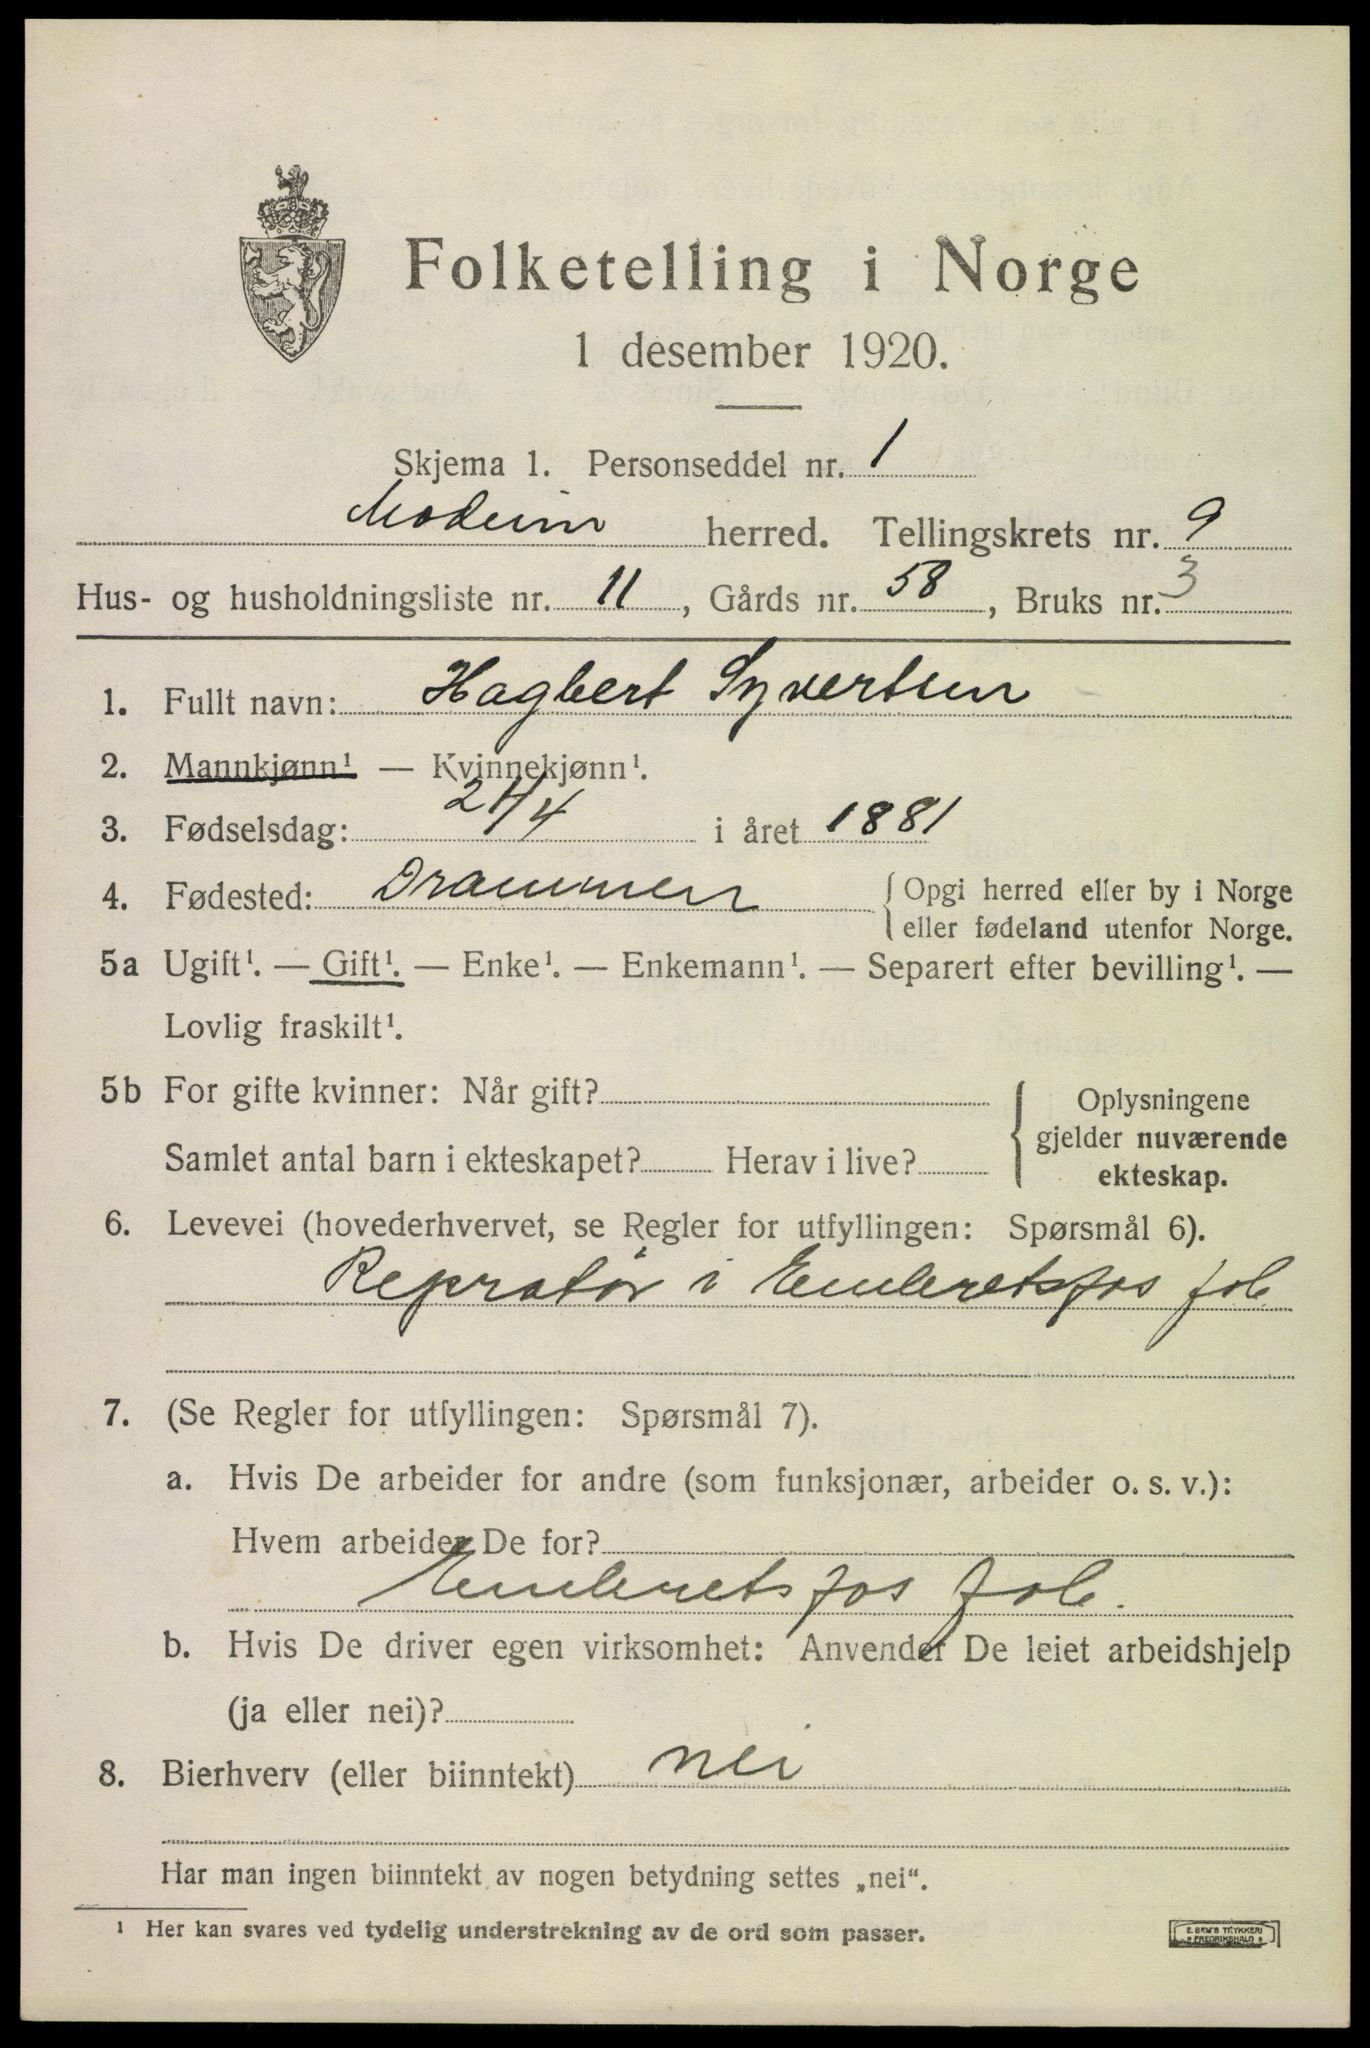 Folketelling i Norge
1 desember 1920.
Skjema 1. Personseddel nr. 1
Modum herred. Tellingskrets nr. 9
Hus- og husholdningsliste nr. 11, Gårds nr. 58, Bruks nr. 3
1. Fullt navn: Hagbert Syvertsen
2. Mannkjønn¹ — Kvinnekjønn¹.
3. Fødselsdag: 24/4 i året 1881
4. Fødested: Drammen { Opgi herred eller by i Norge
eller fødeland utenfor Norge.
5a Ugift¹. — Gift¹. — Enke¹. — Enkemann¹. — Separert efter bevilling¹. —
Lovlig fraskilt¹.
5b For gifte kvinner: Når gift? { Oplysningene
gjelder nuværende
Samlet antal barn i ekteskapet? Herav i live? ekteskap.
6. Levevei (hovederhvervet, se Regler for utfyllingen: Spørsmål 6).
Repratør i Embretsfos fab
7. (Se Regler for utfyllingen: Spørsmål 7).
a. Hvis De arbeider for andre (som funksjonær, arbeider o. s. v.):
Hvem arbeider De for?
Embretsfos fab.
b. Hvis De driver egen virksomhet: Anvender De leiet arbeidshjelp
(ja eller nei)?
8. Bierhverv (eller biinntekt) nei
Har man ingen biinntekt av nogen betydning settes „nei“.
¹ Her kan svares ved tydelig understrekning av de ord som passer.
E. SEM'S TRYKKERI
FREDRIKSHALD